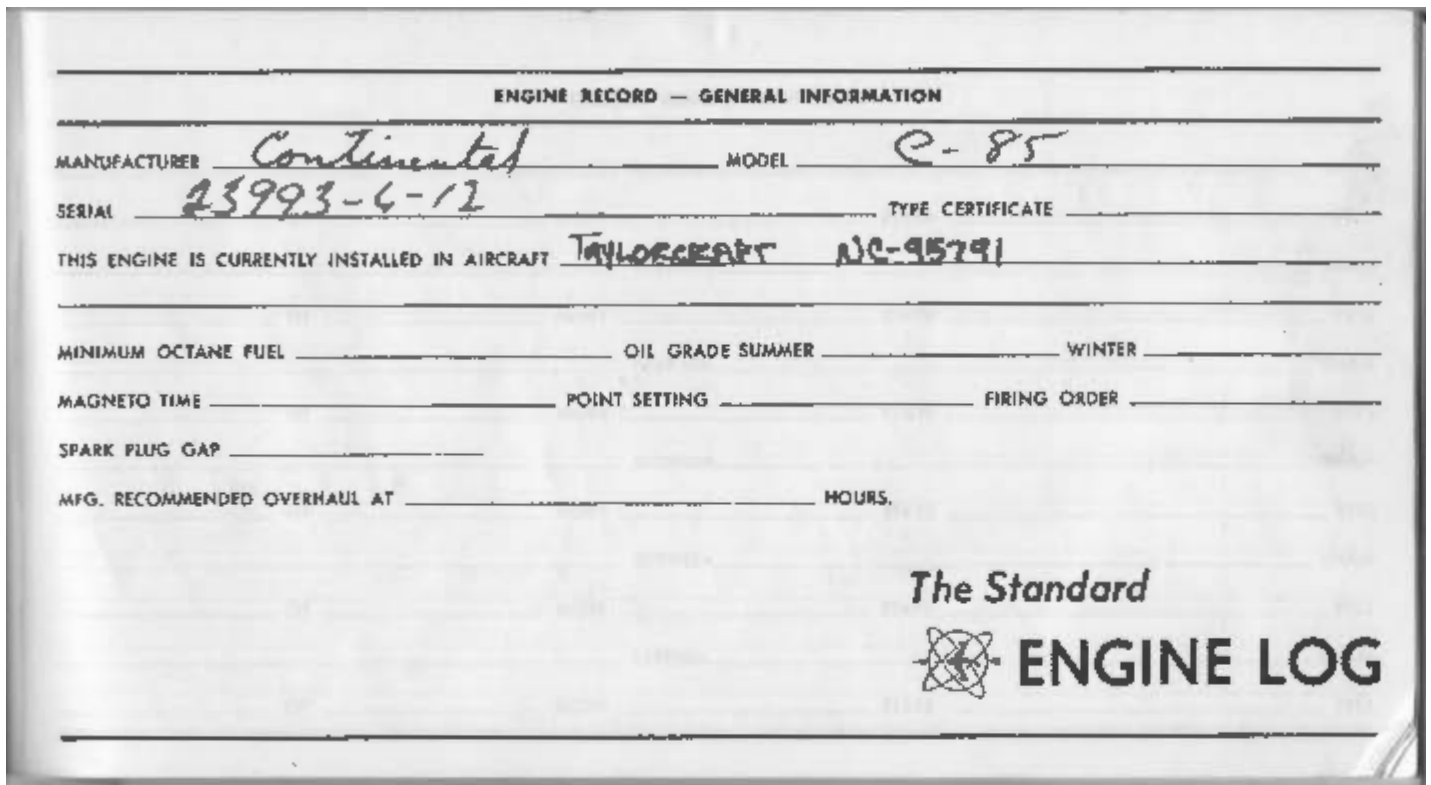 ENGINE RECORD — GENERAL INFORMATION
MANUFACTURER Continental MODEL C-85
SERIAL 23993-6-12 TYPE CERTIFICATE
THIS ENGINE IS CURRENTLY INSTALLED IN AIRCRAFT TAYLORCRAFT NC-95791
MINIMUM OCTANE FUEL OIL GRADE SUMMER WINTER
MAGNETO TIME POINT SETTING FIRING ORDER
SPARK PLUG GAP
MFG. RECOMMENDED OVERHAUL AT HOURS.
The Standard
ENGINE LOG